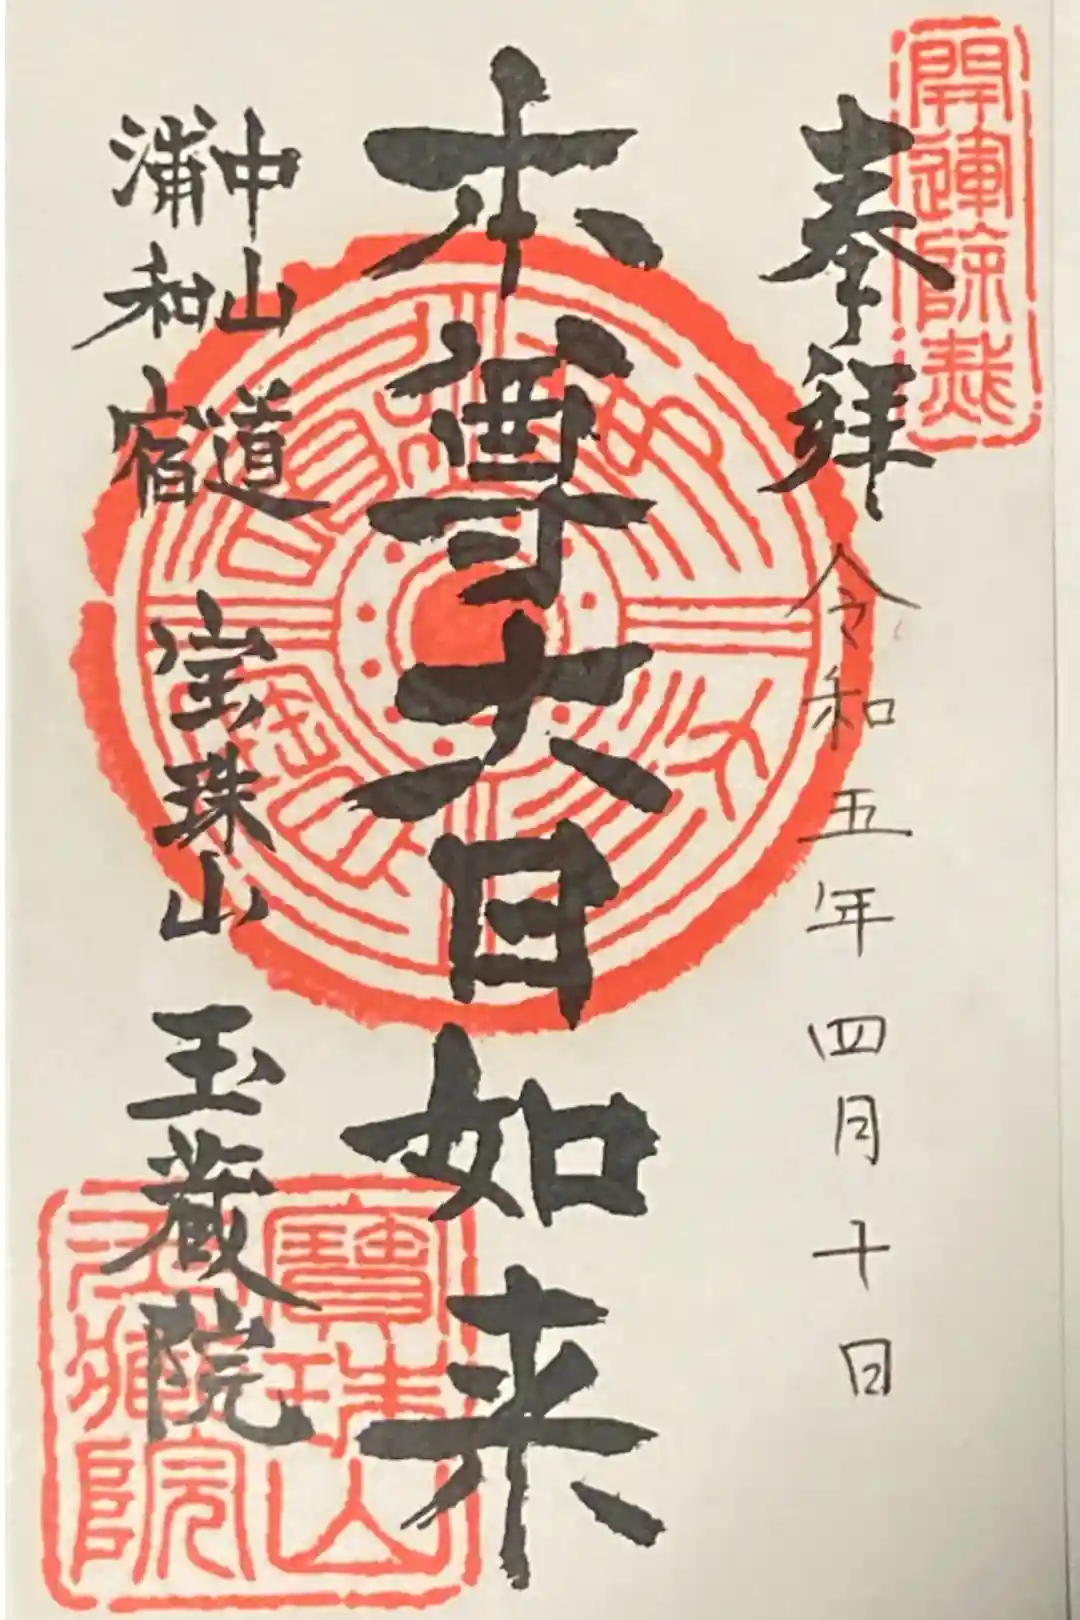 開運除災
奉拝
令和五年四月十日
本尊大日如来
中山道
浦和宿
宝珠山
玉蔵院
寶珠山
玉藏院